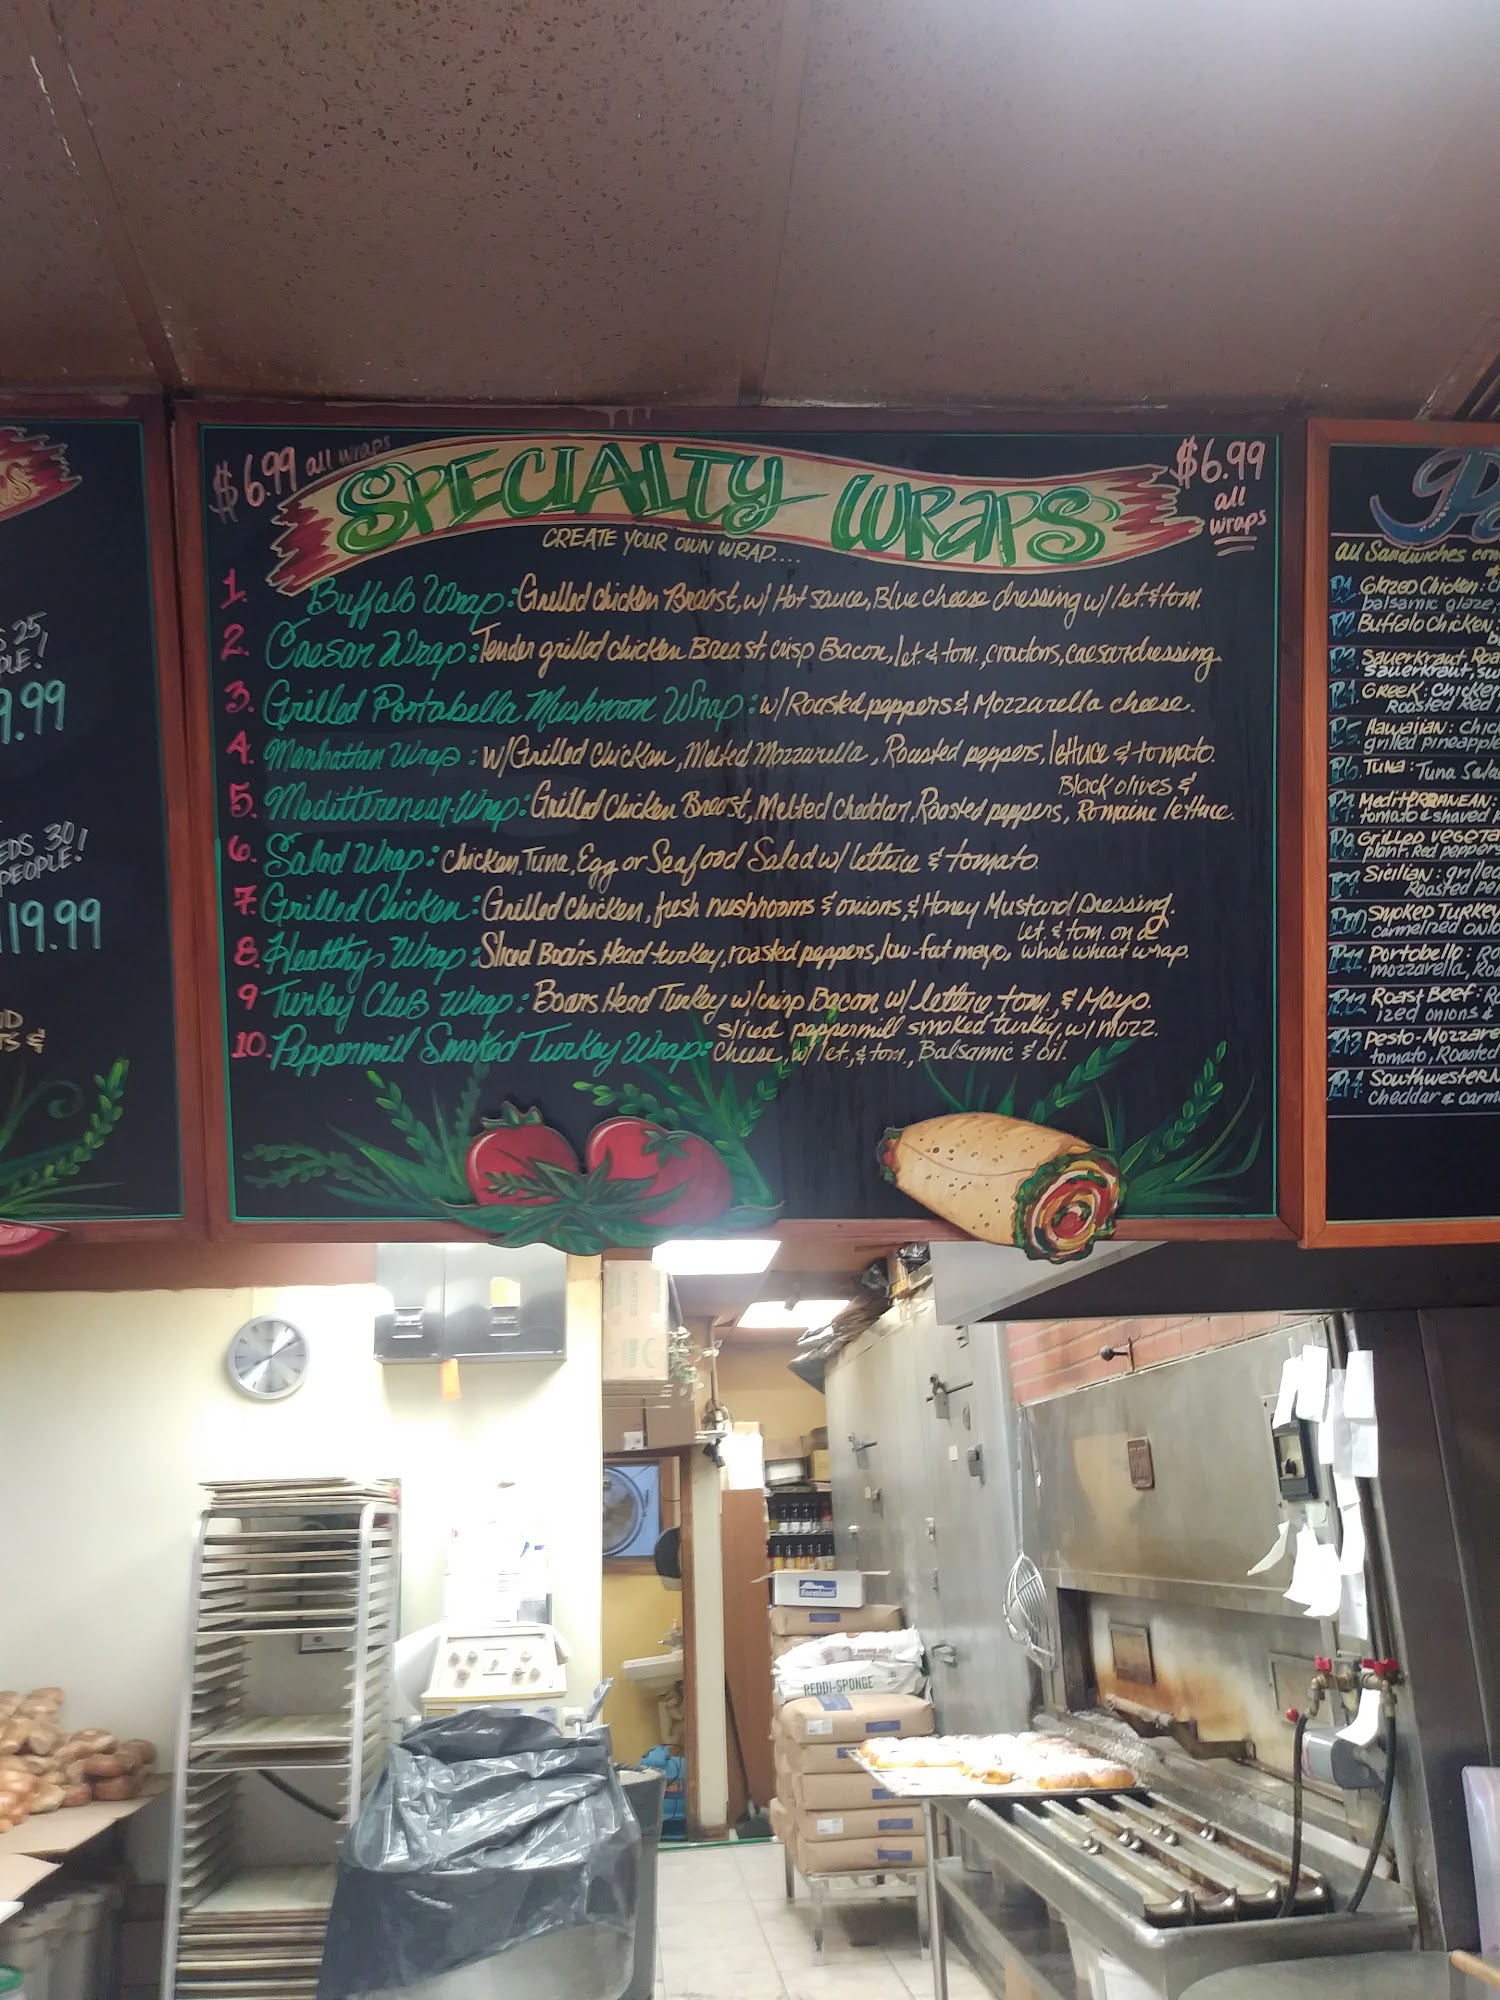 $6.99 all wraps
SPECIALTY WRAPS
$6.99
all
wraps
CREATE YOUR OWN WRAP....
1. Buffalo Wrap: Grilled chicken Breast, w/ Hot sauce, Blue cheese dressing w/ let. & tom.
2. Caesar Wrap: Tender grilled chicken Breast, crisp Bacon, let. & tom., croutons, caesar dressing.
3. Grilled Portabella Mushroom Wrap: w/ Roasted peppers & Mozzarella cheese.
4. Manhattan Wrap: w/ Grilled Chicken, Melted Mozzarella, Roasted peppers, lettuce & tomato.
Black olives &
5. Meditterenean Wrap: Grilled Chicken Breast, Melted Cheddar, Roasted peppers, Romaine lettuce.
6. Salad Wrap: Chicken, Tuna, Egg or Seafood Salad w/ lettuce & tomato.
7. Grilled Chicken: Grilled chicken, fresh mushrooms & onions, & Honey Mustard Dressing.
let. & tom. on a
8. Healthy Wrap: Sliced Boar's Head turkey, roasted peppers, low-fat mayo, whole wheat wrap.
9 Turkey Club Wrap: Boars Head Turkey w/ crisp Bacon w/ lettuce, tom., & Mayo.
sliced peppermill smoked turkey, w/ mozz.
10. Peppermill Smoked Turkey Wrap: cheese, w/ let., & tom., Balsamic & oil.
25
PLE!
9.99
EDS 30!
PEOPLE!
119.99
all Sandwiches com
P1 Glazed Chicken:
balsamic glaze,
P2 Buffalo Chicken:
P3 Sauerkraut Roa
sauerkraut, sw
P4 Greek: chicken
Roasted Red p
P5 Hawaiian: chic
grilled pineapple
P6 Tuna: Tuna Sala
P7 Mediterranean:
tomato & shaved p
P8 Grilled Vegeta
plant, Red peppers
P9 Sicilian: grilled
Roasted pe
P10 Smoked Turkey
carmelized onio
P11 Portobello: Ro
mozzarella, Roa
P12 Roast Beef: Ro
ized onions &
P13 Pesto-Mozzare
tomato, Roasted
P14 Southwestern
cheddar & carm
Farmland
REDDI-SPONGE